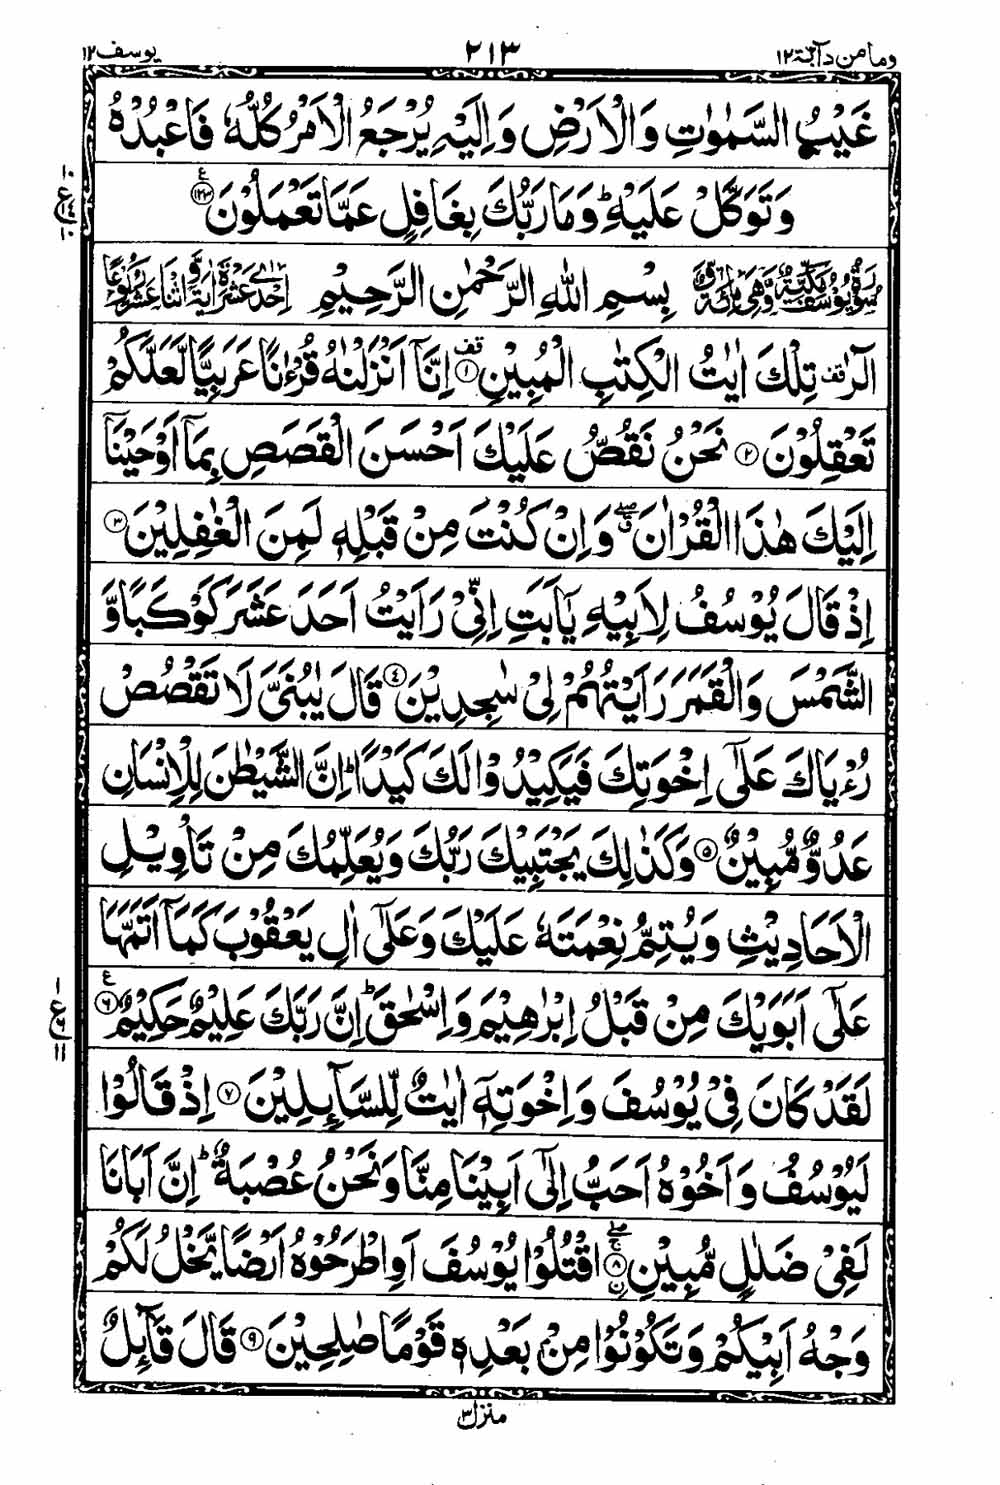 وما من دآبة ١٢ ٢١٣ يوسف ١٢
غَيْبُ السَّمٰوٰتِ وَالْاَرْضِ وَاِلَيْهِ يُرْجَعُ الْاَمْرُ كُلُّهٗ فَاعْبُدْهُ
وَتَوَكَّلْ عَلَيْهِ ؕ وَمَا رَبُّكَ بِغَافِلٍ عَمَّا تَعْمَلُوْنَ ﴿۱۲۳﴾ ع
١٠ ع ١٤ ١٠
سُوْرَةُ يُوْسُفَ مَكِّيَّةٌ وَّهِيَ مِائَةٌ وَّ بِسْمِ اللهِ الرَّحْمٰنِ الرَّحِيْمِ اِحْدٰى عَشْرَةَ اٰيَةً وَّاثْنَا عَشَرَ رُكُوْعًا
الٓرٰ ۫ تِلْكَ اٰيٰتُ الْكِتٰبِ الْمُبِيْنِ ﴿۱﴾ اِنَّاۤ اَنْزَلْنٰهُ قُرْءٰنًا عَرَبِيًّا لَّعَلَّكُمْ
تَعْقِلُوْنَ ﴿۲﴾ نَحْنُ نَقُصُّ عَلَيْكَ اَحْسَنَ الْقَصَصِ بِمَاۤ اَوْحَيْنَاۤ
اِلَيْكَ هٰذَا الْقُرْاٰنَ ۖ وَاِنْ كُنْتَ مِنْ قَبْلِهٖ لَمِنَ الْغٰفِلِيْنَ ﴿۳﴾
اِذْ قَالَ يُوْسُفُ لِاَبِيْهِ يٰۤاَبَتِ اِنِّيْ رَاَيْتُ اَحَدَ عَشَرَ كَوْكَبًا وَّ
الشَّمْسَ وَالْقَمَرَ رَاَيْتُهُمْ لِيْ سٰجِدِيْنَ ﴿۴﴾ قَالَ يٰبُنَيَّ لَا تَقْصُصْ
رُءْيَاكَ عَلٰۤى اِخْوَتِكَ فَيَكِيْدُوْا لَكَ كَيْدًا ؕ اِنَّ الشَّيْطٰنَ لِلْاِنْسَانِ
عَدُوٌّ مُّبِيْنٌ ﴿۵﴾ وَكَذٰلِكَ يَجْتَبِيْكَ رَبُّكَ وَيُعَلِّمُكَ مِنْ تَاْوِيْلِ
الْاَحَادِيْثِ وَيُتِمُّ نِعْمَتَهٗ عَلَيْكَ وَعَلٰۤى اٰلِ يَعْقُوْبَ كَمَاۤ اَتَمَّهَا
عَلٰۤى اَبَوَيْكَ مِنْ قَبْلُ اِبْرٰهِيْمَ وَاِسْحٰقَ ؕ اِنَّ رَبَّكَ عَلِيْمٌ حَكِيْمٌ ﴿۶﴾ ع
١ ع ٦ ١١
لَقَدْ كَانَ فِيْ يُوْسُفَ وَاِخْوَتِهٖۤ اٰيٰتٌ لِّلسَّآئِلِيْنَ ﴿۷﴾ اِذْ قَالُوْا
لَيُوْسُفُ وَاَخُوْهُ اَحَبُّ اِلٰۤى اَبِيْنَا مِنَّا وَنَحْنُ عُصْبَةٌ ؕ اِنَّ اَبَانَا
لَفِيْ ضَلٰلٍ مُّبِيْنِ ﴿۸﴾ ۨاقْتُلُوْا يُوْسُفَ اَوِ اطْرَحُوْهُ اَرْضًا يَّخْلُ لَكُمْ
وَجْهُ اَبِيْكُمْ وَتَكُوْنُوْا مِنْۢ بَعْدِهٖ قَوْمًا صٰلِحِيْنَ ﴿۹﴾ قَالَ قَآئِلٌ
منزل ٣